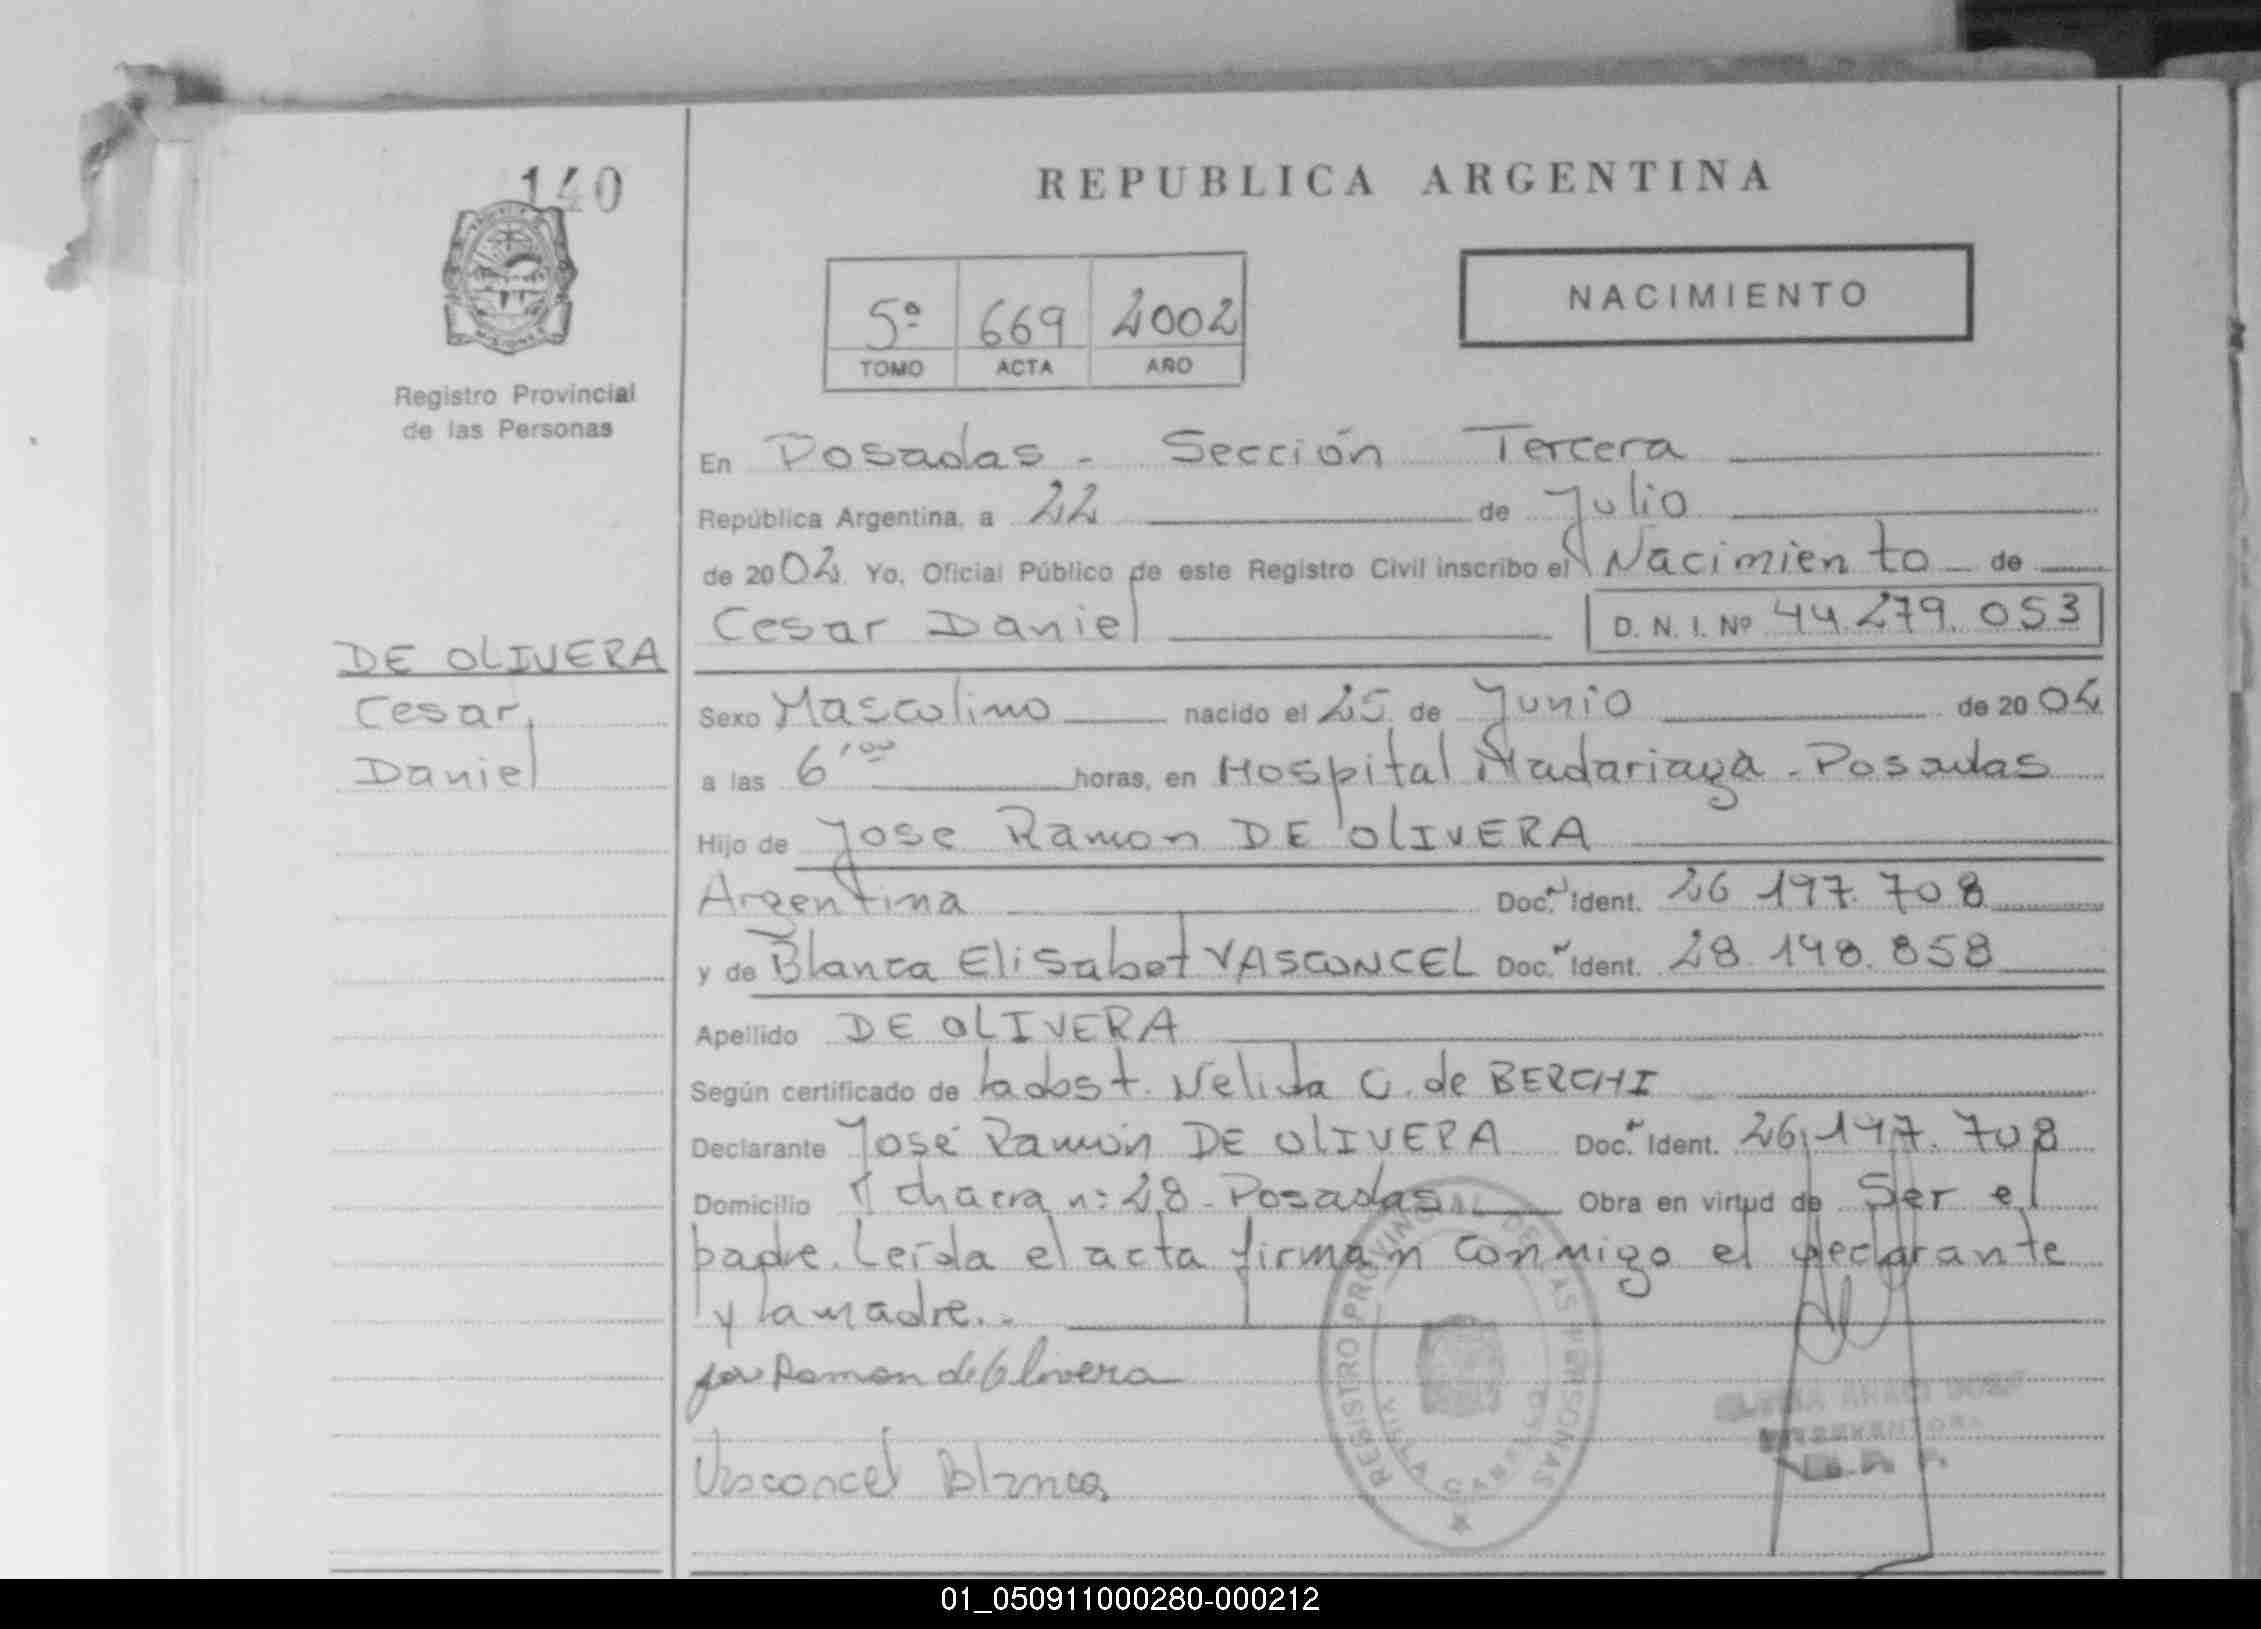 140
REPUBLICA ARGENTINA
NACIMIENTO
5º 669 2002
TOMO ACTA AÑO
Registro Provincial
de las Personas
En Posadas - Sección Tercera
República Argentina, a 22 de Julio
de 2002. Yo, Oficial Público de este Registro Civil inscribo el Nacimiento de
Cesar Daniel D. N. I. Nº 44.279.053
DE OLIVERA
Cesar,
Daniel
Sexo Masculino nacido el 25 de Junio de 2002
a las 6'00 horas, en Hospital Madariaga - Posadas
Hijo de Jose Ramon DE OLIVERA
Argentina Doc. Ident. 26.197.708
y de Blanca Elisabet VASCONCEL Doc. Ident. 28.198.858
Apellido DE OLIVERA
Según certificado de la obst. Nelida C. de BERCHI
Declarante José Ramón DE OLIVERA Doc. Ident. 26.197.708
Domicilio chacra n: 28 - Posadas Obra en virtud de Ser el
padre. Leída el acta firman conmigo el declarante
y la madre. -
Jose Ramon de Olivera
Vasconcel Blanca
REGISTRO PROVINCIAL DE LAS PERSONAS
VILLA CABELLO
01_050911000280-000212